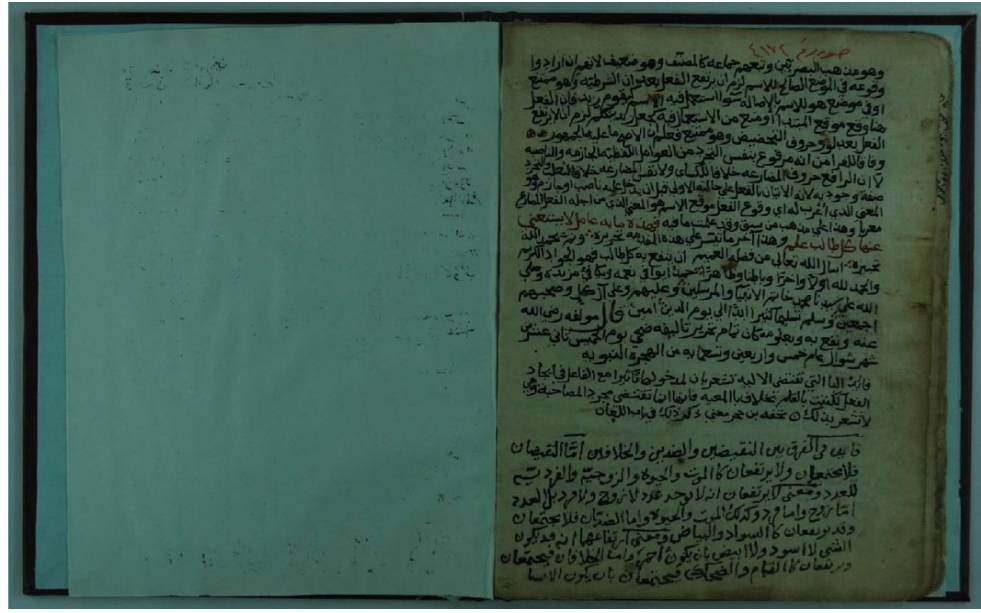 صور رقم ٤٦٧٢
وهو مذهب البصريين وتبعهم جماعة كالمصنف وهو ضعيف لانهم ان ارادوا
وقوعه في الموضع الصالح للاسم لزم ان يرتفع الفعل بعد ان الشرطية وهو ممتنع
او في موضع هو للاسم بالاصالة سوا استعمل فيه الاسم نحو يقوم زيد فان الفعل
هنا وقع موقع المبتدا او منع من الاستعمال فيه نحو جعل زيد يتكلم لزم ان لا يرتفع
الفعل بعد لو وحروف التحضيض وهو ممتنع فعلم ان الاصح ما عليه الجمهور
وفاقا للفرا من انه مرفوع بنفس التجرد من العوامل اللفظية الجازمة والناصبة
لا ان الرافع حروف المضارعة خلافا للكساى ولا نفس المضارعة خلافا لثعلب والتجرد
صفة وجودية لانه الاتيان بالفعل على حالته الاولى قبل ان يدخل عليه ناصب او جازم وهو
المعنى الذي اعرب له اي وقوع الفعل موقع الاسم هو المعنى الذي من اجله الفعل المضارع
معربا وهذا على مذهب من سبق وقد علمت ما فيه فهذه ماية عامل لا يستغني
عنها كل طالب علم وهذا اخر ما تيسر على هذه المقدمة تحريره وتم بحمد الله
تحبيره اسال الله تعالى من فضله العميم ان ينفع به كل طالب فهو الجواد الكريم
والحمد لله اولا واخرا وباطنا وظاهرا حمدا يوافي نعمه ويكافي مزيده وصلى
الله على سيدنا محمد خاتم الانبيا والمرسلين وعليهم وعلى آل كل وصحبهم
اجمعين وسلم تسليما كثيرا ابدا الى يوم الدين امين قال مولفه رضي الله
عنه ونفع به وبعلومه كان تمام تحرير تاليفه ضحي يوم الخميس ثاني عشرين
شهر شوال عام خمس واربعين وتسعماية من الهجرة النبوية
فايدة البا التي تقتضي الالية تشعر بان لمدخولها تاثيرا مع الفاعل في ايجاد
الفعل ككتبت بالقلم بخلاف با المعية فانها انما تقتضي مجرد المصاحبة وهي
لا تشعر بذلك تحفه بن حجر معنى ذكر ذلك في باب اللعان
فايدة في الفرق بين النقيضين والضدين والخلافين اما النقيضان
فلا يجتمعان ولا يرتفعان كالموت والحيوة والزوجية والفردية
للعدد ومعنى لا يرتفعان انه لا يوجد عدد لا زوج ولا فرد بل العدد
اما زوج واما فرد وكذلك الموت والحيوة واما الضدان فلا يجتمعان
وقد يرتفعان كالسواد والبياض ومعنى ارتفاعهما انه قد يكون
الشي لا اسود ولا ابيض بان يكون احمر واما الخلافان فيجتمعان
ويرتفعان كالقيام والضحك فيجتمعان بان يكون الانسا